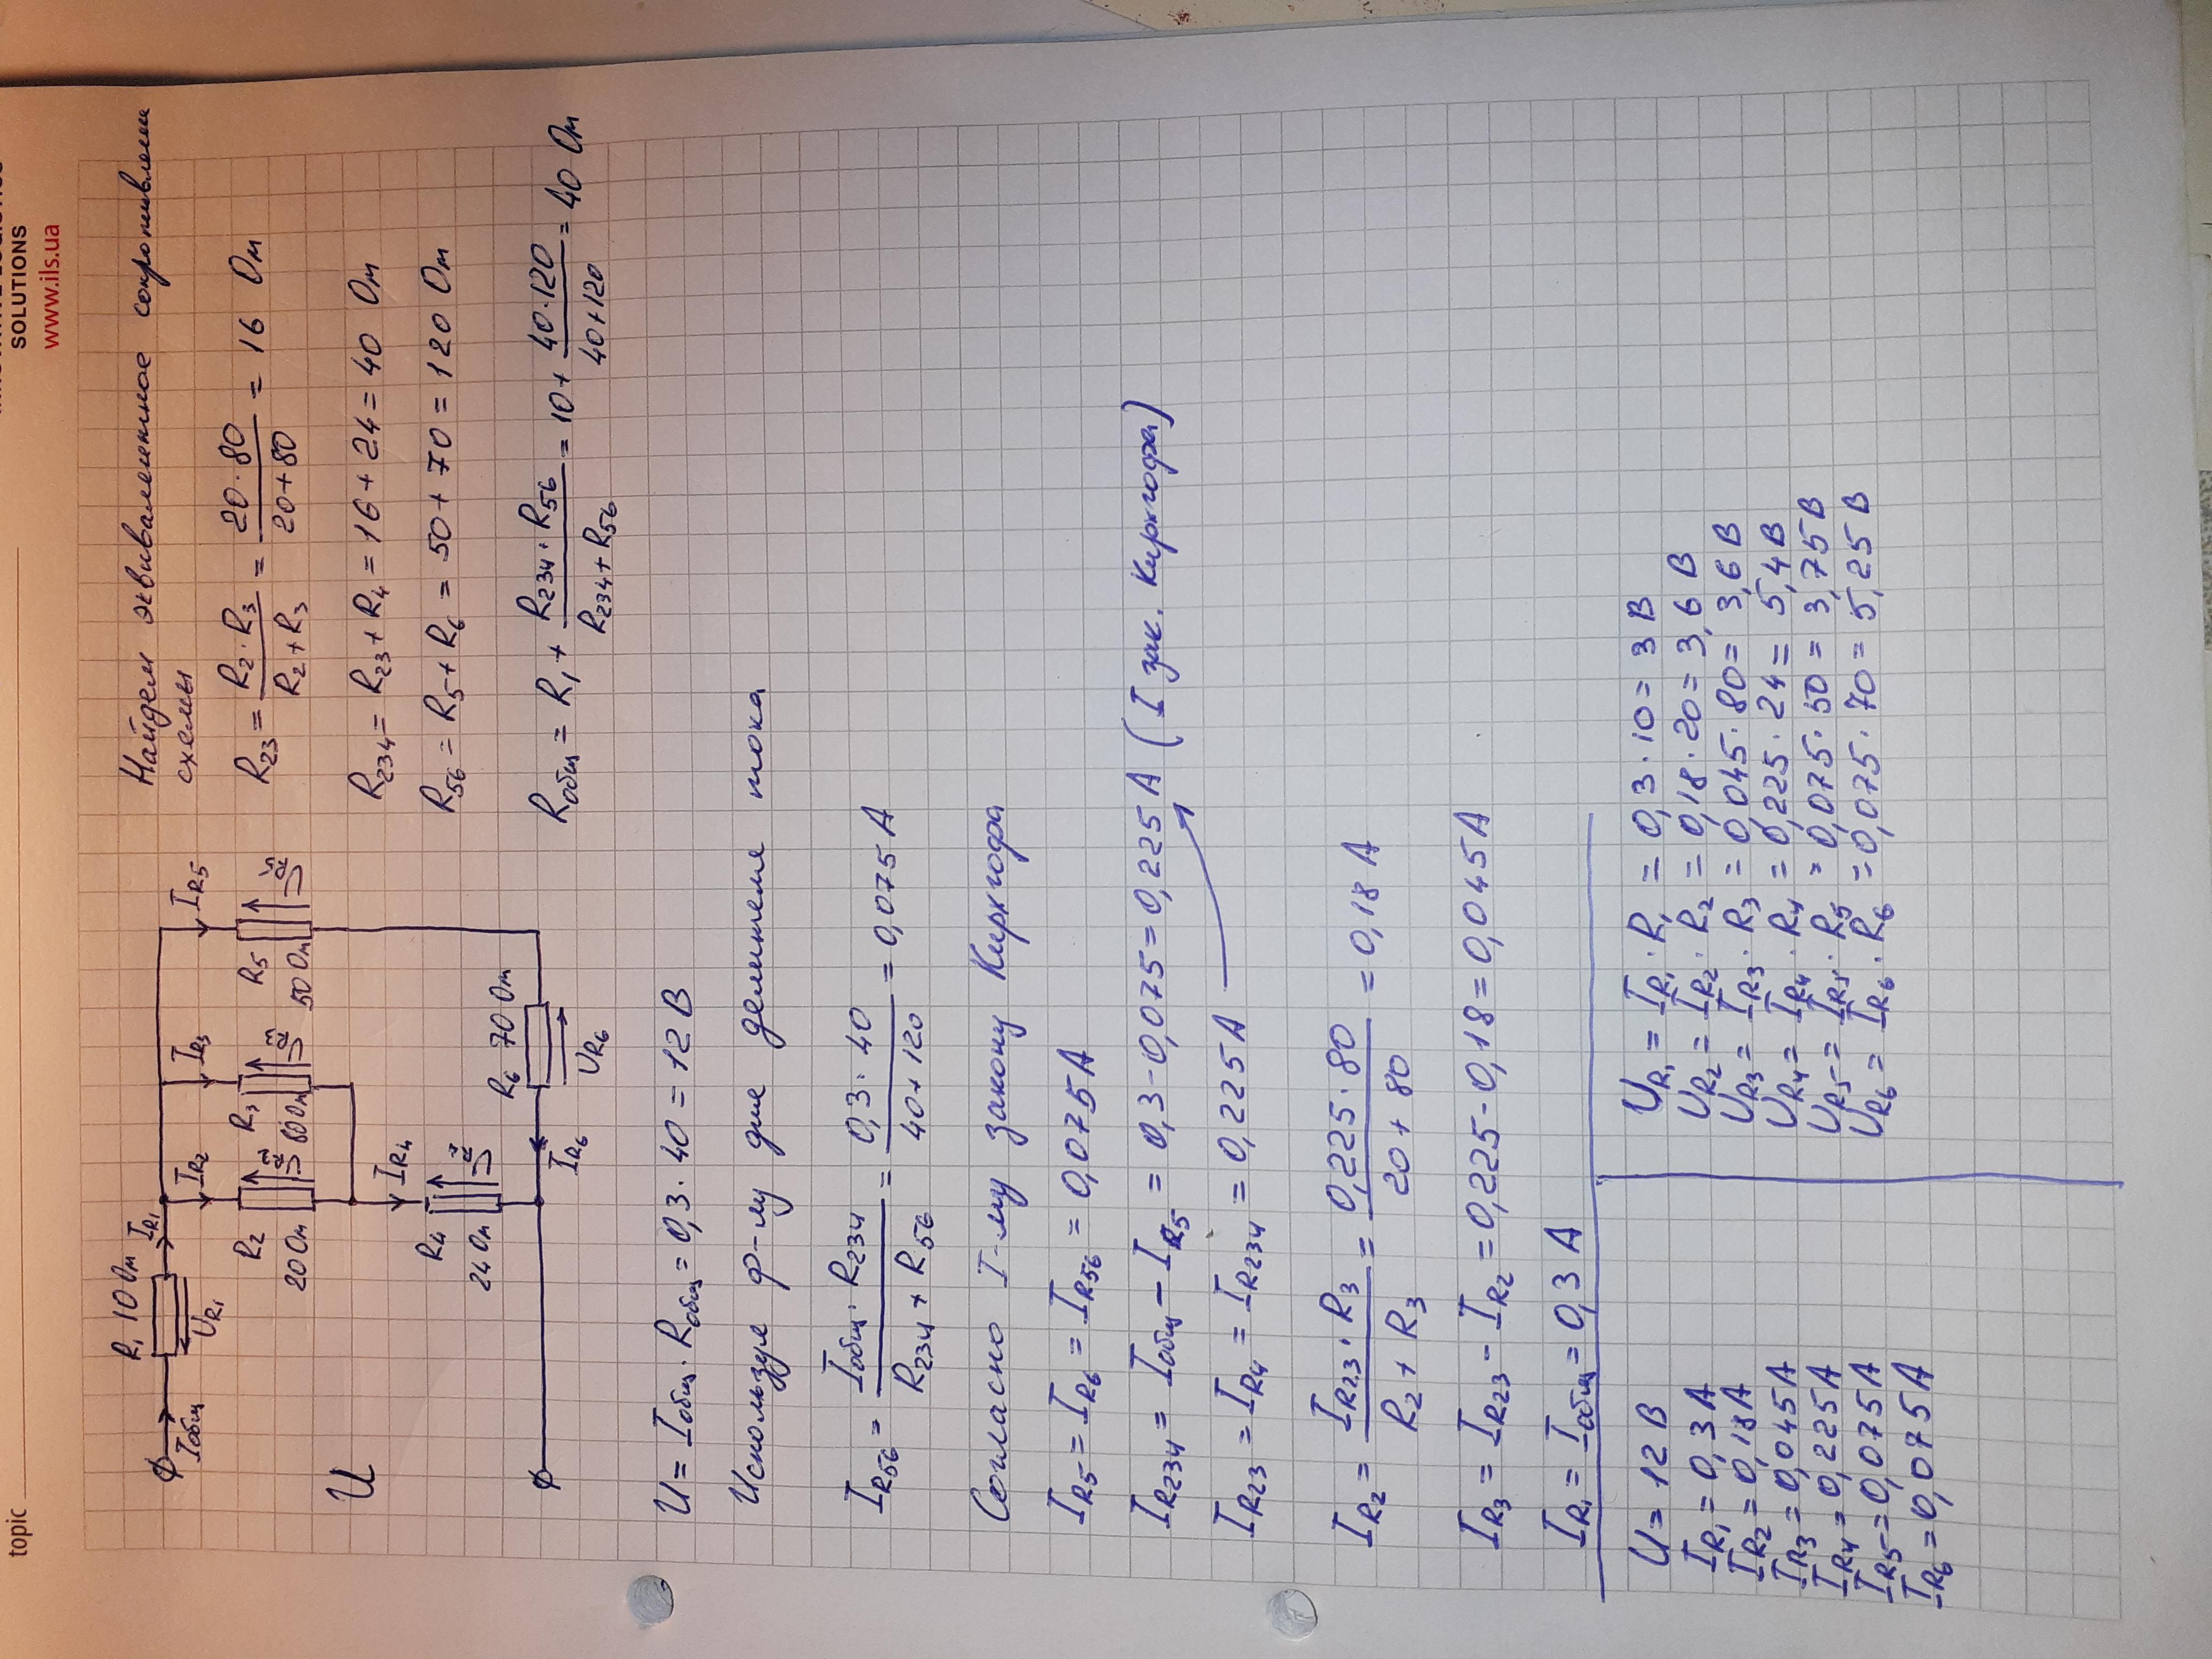 topic
SOLUTIONS
www.ils.ua
R₁ 10 Ом
I_R₁
I общ
U_R₁
I_R₂
I_R₃
I_R₅
R₂
20 Ом
80 Ом
R₅
50 Ом
U
I_R₄
R₄
24 Ом
R₆ 70 Ом
I_R₆
U_R₆
Найдем эквивалентное сопротивлени
схемы
R₂₃ = R₂ · R₃ / R₂ + R₃ = 20 · 80 / 20 + 80 = 16 Ом
R₂₃₄ = R₂₃ + R₄ = 16 + 24 = 40 Ом
R₅₆ = R₅ + R₆ = 50 + 70 = 120 Ом
R общ = R₁ + R₂₃₄ · R₅₆ / R₂₃₄ + R₅₆ = 10 + 40 · 120 / 40 + 120 = 40 Ом
U = I общ · R общ = 0,3 · 40 = 12 В
Используя ф-лу для деления тока
I_R₅₆ = I общ · R₂₃₄ / R₂₃₄ + R₅₆ = 0,3 · 40 / 40 + 120 = 0,075 А
Согласно I-му закону Кирхгофа
I_R₅ = I_R₆ = I_R₅₆ = 0,075 А
I_R₂₃₄ = I общ − I_R₅ = 0,3 − 0,075 = 0,225 А (I зак. Кирхгофа)
I_R₂₃ = I_R₄ = I_R₂₃₄ = 0,225 А
I_R₂ = I_R₂₃ · R₃ / R₂ + R₃ = 0,225 · 80 / 20 + 80 = 0,18 А
I_R₃ = I_R₂₃ − I_R₂ = 0,225 − 0,18 = 0,045 А
I_R₁ = I общ = 0,3 А
U = 12 В
I_R₁ = 0,3 А
I_R₂ = 0,18 А
I_R₃ = 0,045 А
I_R₄ = 0,225 А
I_R₅ = 0,075 А
I_R₆ = 0,075 А
U_R₁ = I_R₁ · R₁ = 0,3 · 10 = 3 В
U_R₂ = I_R₂ · R₂ = 0,18 · 20 = 3,6 В
U_R₃ = I_R₃ · R₃ = 0,045 · 80 = 3,6 В
U_R₄ = I_R₄ · R₄ = 0,225 · 24 = 5,4 В
U_R₅ = I_R₅ · R₅ = 0,075 · 50 = 3,75 В
U_R₆ = I_R₆ · R₆ = 0,075 · 70 = 5,25 В